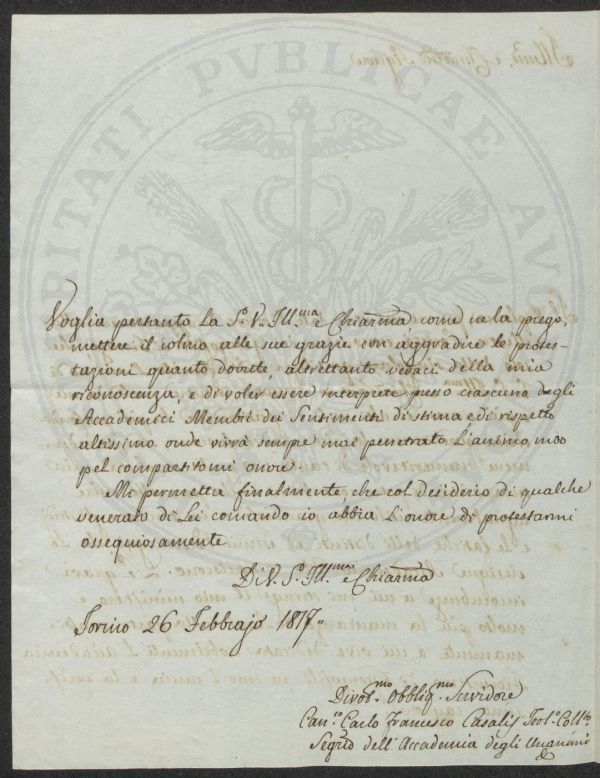 RITATI PVBLICAE AVC
Voglia pertanto La S. V. Ill.ma e Chiar.ma come ne la prego,
mettere il colmo alle sue grazie con aggradire le protes-
tazioni quanto dovute, altrettanto veraci della mia
riconoscenza, e di voler essere interprete presso ciascuno degli
Accademici Membri dei Sentimenti di stima e di rispetto
altissimo onde vivrà sempre mai penetrato L'animo mio
pel compartitomi onore.
Mi permetta finalmente che col desiderio di qualche
venerato di Lei comando io abbia L'onore di protestarmi
ossequiosamente
Di V. S. Ill.ma e Chiar.ma
Torino 26 Febbrajo 1817.
Divot.mo Obblig.mo Servidore
Can.co Carlo Francesco Casalis Teol.o Coll.to
Segr.o dell'Accademia degli Unanimi